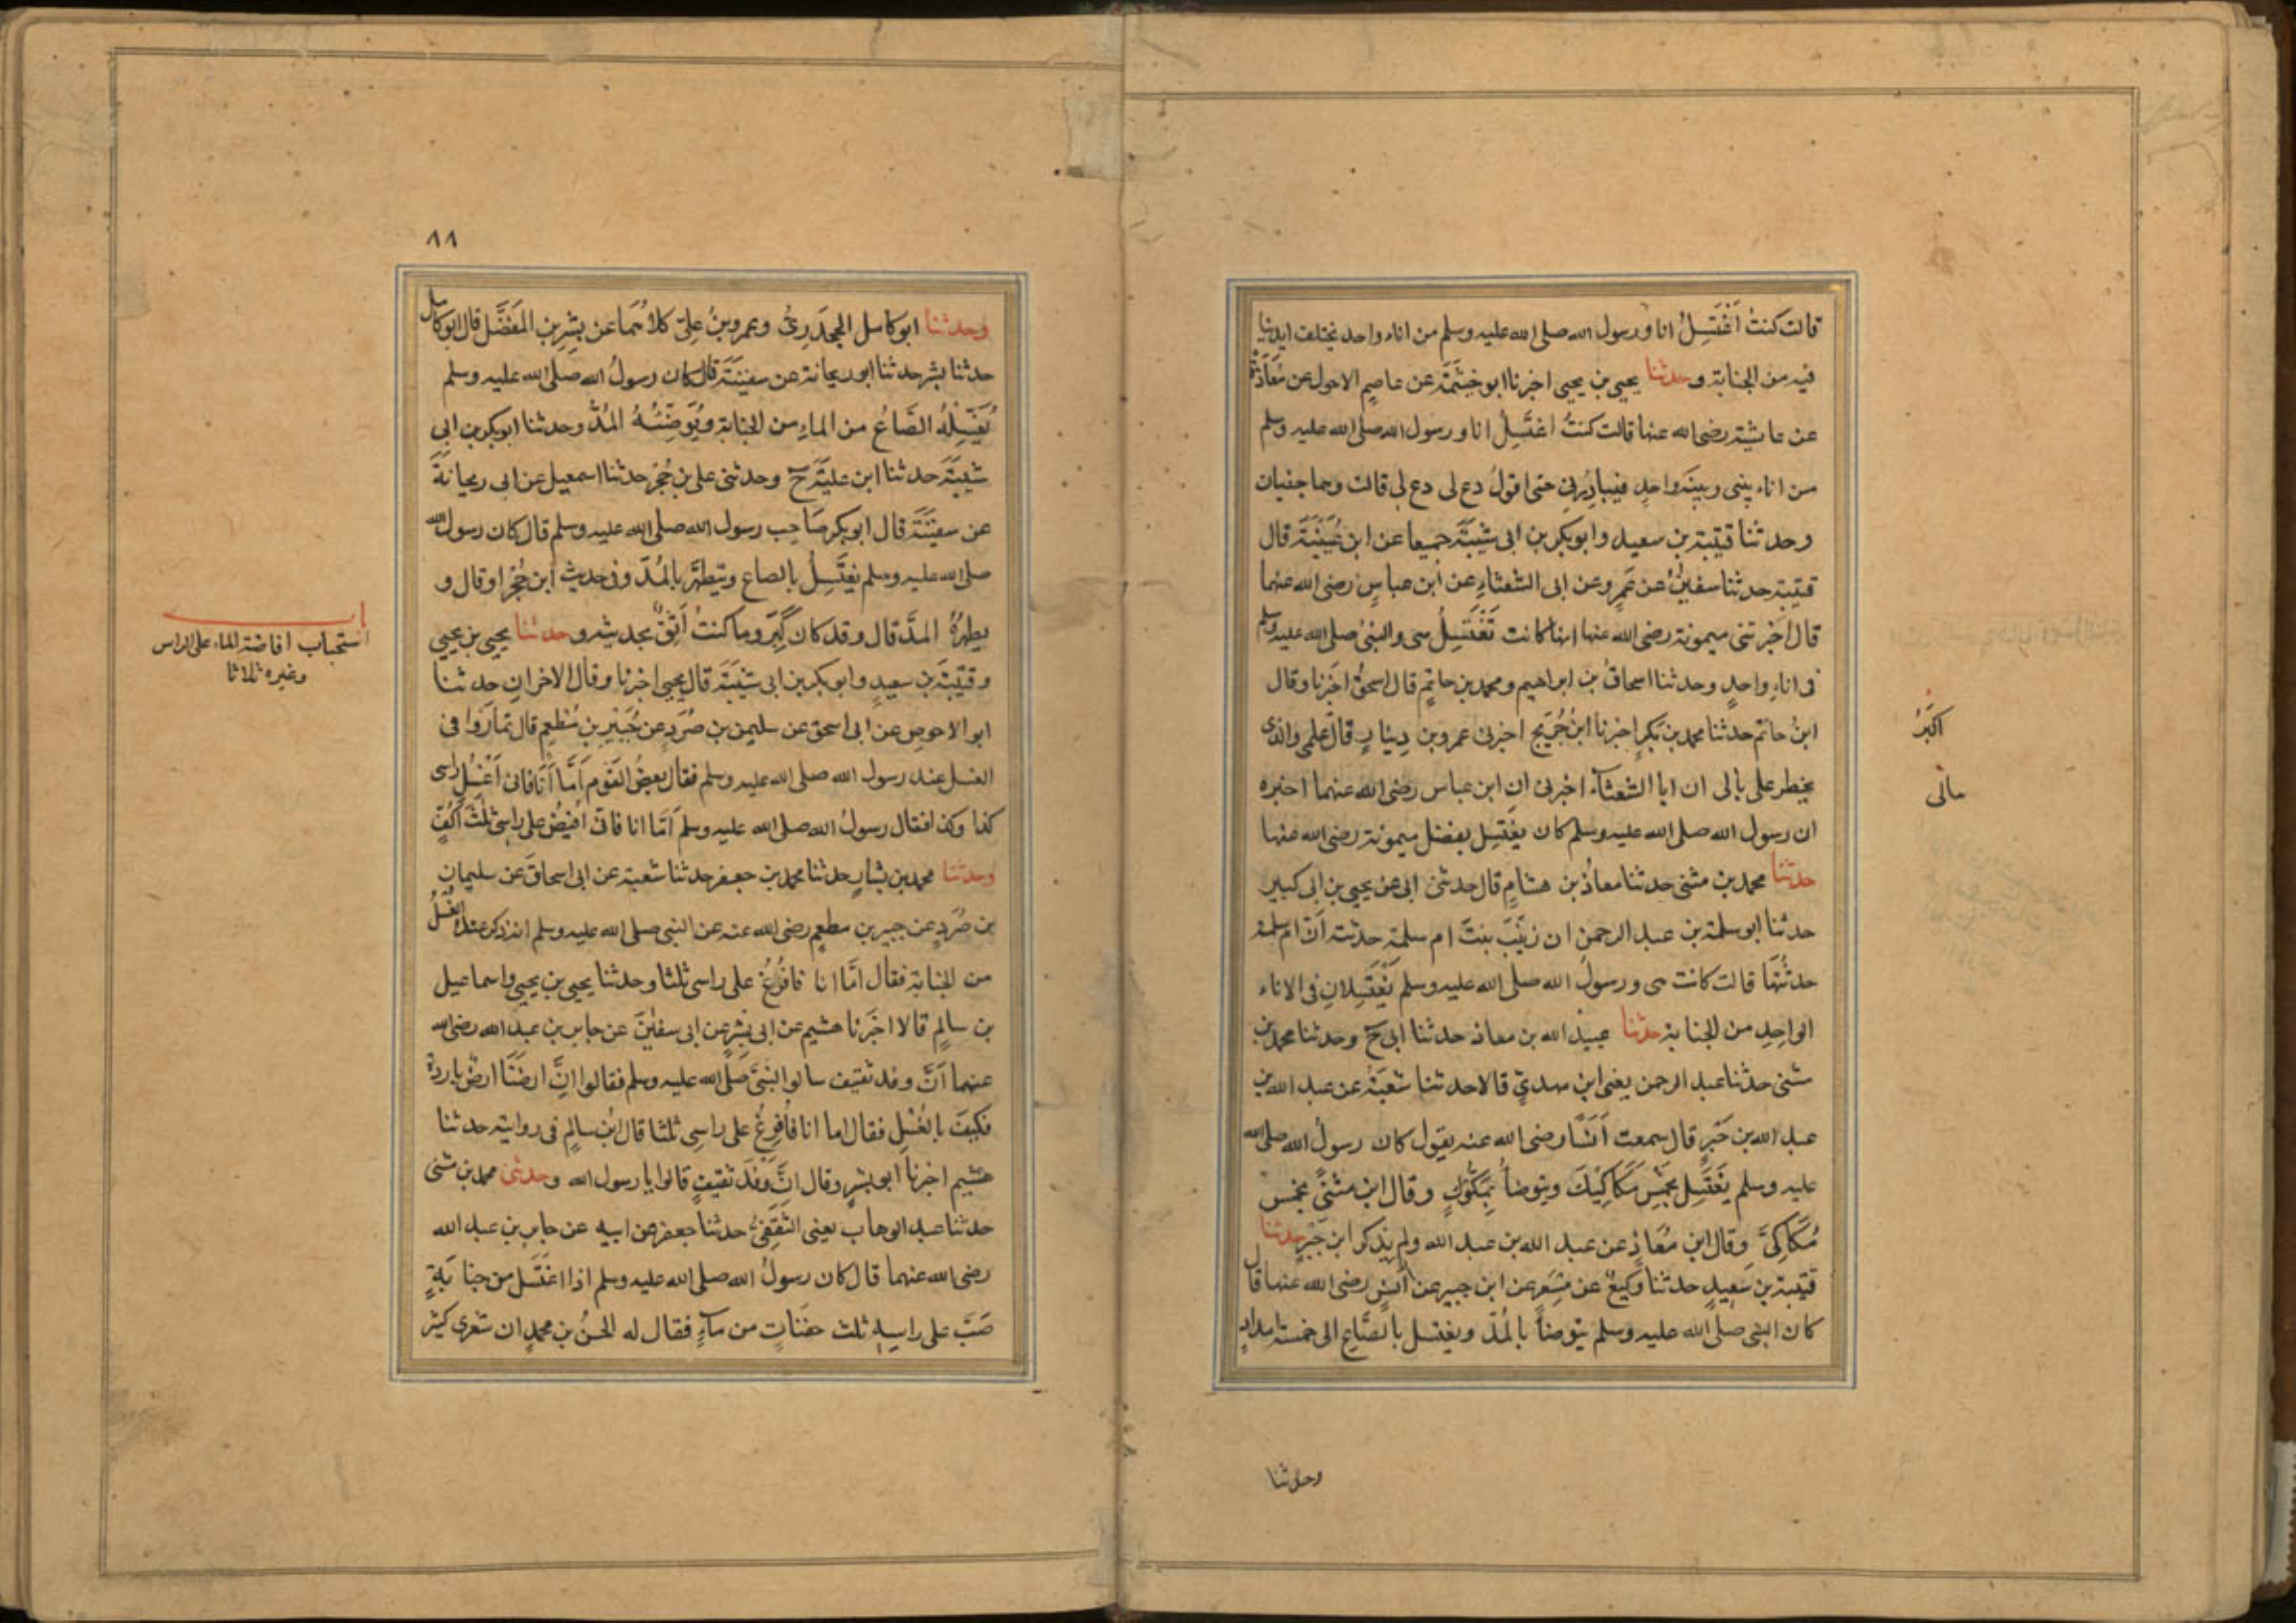 قالت كنتُ اَغْتَسِلُ انا ورسول الله صلى الله عليه وسلم من اناء واحد تختلف ايدينا
فيه من الجنابة وحدثنا يحيى بن يحيى اخبرنا ابو خيثمة عن عاصم الاحول عن مُعَاذَة
عن عايشة رضى الله عنها قالت كنتُ اغتَسِلُ انا ورسول الله صلى الله عليه وسلم
من اناء بينى وبينَه واحدٍ فيبادِرُنى حتى اقولُ دع لى دع لى قالت وهما جنبان
وحدثنا قتيبة بن سعيد وابوبكر بن ابى شيبَةَ جميعا عن ابن عُيَيْنَةَ قال
قتيبة حدثنا سفينُ عن عَمرٍ وعن ابى الشعثاءِ عن ابن عباسٍ رضى الله عنهما
قال اخبرتنى ميمونة رضى الله عنها انها كانت تَغْتَسِلُ هى والنبىُ صلى الله عليه وسلم
فى اناءٍ واحدٍ وحدثنا اسحاقُ بن ابراهيم ومحمد بن حاتمٍ قال اسحقُ اخبَرنا وقال
ابنُ حاتم حدثنا محمد بن بَكرٍ اخبرنا ابنُ جُرَيج اخبرنى عمرو بن دِينارٍ قال علمى والذى
يخطر على بالى ان ابا الشعثاء اخبرنى ان ابن عباس رضى الله عنهما اخبره
ان رسول الله صلى الله عليه وسلم كان يغتَسِل بفضل ميمونة رضى الله عنها
حدثنا محمد بن مثنى حدثنا معاذُ بن هشامٍ قال حدثنى ابى عن يحيى بن ابى كبير
حدثنا ابو سلمة بن عبد الرحمن ان زينَبَ بنتَ ام سلمة حدثته اَنّ ام سلمة
حدثتْهَا قالت كانت هى ورسولُ الله صلى الله عليه وسلم يَغْتَسِلانِ فى الاناء
الواحِدِ من الجنابة حدثنا عبيدُ الله بن معاذ حدثنا ابى ح وحدثنا محمد بن
مثنى حدثنا عبد الرحمن يعنى ابن مهدىٍ قالا حدثنا شعبَةُ عن عبد الله بن
عبد الله بن جَبْرٍ قال سمعت اَنَسًا رضى الله عنه يقول كان رسولُ الله صلى الله
عليه وسلم يَغتَسِل بخَمْسِ مَكَاكِيْكَ ويتوضأُ بِمَكُّوكٍ وقال ابن مثنىًّ بخمس
مَكَاكِىَّ وقال ابن مُعَاذٍ عن عبد الله بن عبد الله ولم يذكر ابن جَبْرٍ حدثنا
قتيبة بن سَعِيدٍ حدثنا وكيعٌ عن مِسْعَرٍ عن ابن جبير عن اَنَسٍ رضى الله عنها قال
كان النبى صلى الله عليه وسلم يتوضأ بالمُدّ ويغتسل بالصَّاعِ الى خمسة امدادٍ
وحدثنا
اكبَرُ
مالى
٨٨
وحدثنا ابو كامل الجحدَرِىُّ وعمرو بنُ علِىّ كلاهُمَا عن بِشرِ بن المفَضَّل قال ابو كامل
حدثنا بشر حدثنا ابو ريحانة عن سفينَةَ قال كان رسولُ الله صلى الله عليه وسلم
يُغَسِّلُهُ الصَّاعُ من الماءِ من الجنابة ويُوَضِّئُهُ المُدُّ وحدثنا ابوبكر بن ابى
شيبَةَ حدثنا ابن عليَّةَ ح وحدثنى على بن حُجْرٍ حدثنا اسمعيل عن ابى ريحانةَ
عن سفينَةَ قال ابوبكر صَاحِب رسول الله صلى الله عليه وسلم قال كان رسول الله
صلى الله عليه وسلم يغتَسِلُ بالصاع ويتطهرُ بالمُدّ وفى حديث ابن حُجْرٍ او قال و
يطهرهُ المدُّ قال وقد كان كَبِرَ وما كنتُ اَثِقُ بحديثه وحدثنا يحيى بن يحيى
وقتيبَة بن سعيدٍ وابوبكر بن ابى شيبَةَ قال يحيى اخبرنا وقال الاخرانِ حدثنا
ابو الاحوصِ عن ابى اسحق عن سليمن بن صُرَدٍ عن جُبَيْرِ بن مُطعِمٍ قال تمارَوا فى
الغسل عند رسول الله صلى الله عليه وسلم فقال بعضُ القَوم اَمَّا اَنا فانى اَغْسِلُ راسى
كذا وكذا فقال رسولُ الله صلى الله عليه وسلم اَمّا انا فانى اُفيضُ على راسى ثلثَ اَكُفٍّ
وحدثنا محمد بن بشارٍ حدثنا محمد بن جعفر حدثنا شعبة عن ابى اسحاقَ عن سليمان
بن صُرَدٍ عن جبير بن مطعِمٍ رضى الله عنه عن النبى صلى الله عليه وسلم انه ذكر عنده الغُسلُ
من الجنابة فقال امَّا انا فافُرغُ على راسى ثلثا وحدثنا يحيى بن يحيى واسماعيل
بن سالمٍ قالا اخبَرنا هشيم عن ابى بِشْرٍ عن ابى سفينَ عن جابر بن عبد الله رضى الله
عنهما اَنَّ وفد ثقيف سالوا النبىَّ صلى الله عليه وسلم فقالوا اِنَّ ارضَنَا ارضٌ باردةٌ
فكيفَ بالغُسْلِ فقال اما انا فاُفرِغُ على راسِى ثلثا قال ابن سالِمٍ فى روايته حدثنا
هشيم اخبرنا ابو بِشرٍ وقال اِنَّ وَفْدَ ثَقيفٍ قالوا يا رسول الله وحدثنى محمد بن مثنى
حدثنا عبد الوهاب يعنى الثقَفِىّ حدثنا جعفر عن ابيه عن جابر بن عبد الله
رضى الله عنهما قال كان رسولُ الله صلى الله عليه وسلم اذا اغتَسَل من جنابَةٍ
صَبَّ على راسِهِ ثلث حفنَاتٍ من مآءٍ فقال له الحسنُ بن محمدٍ ان شعرى كثير
باب
استحباب افاضة الماء على الراس
وغيره ثلاثا